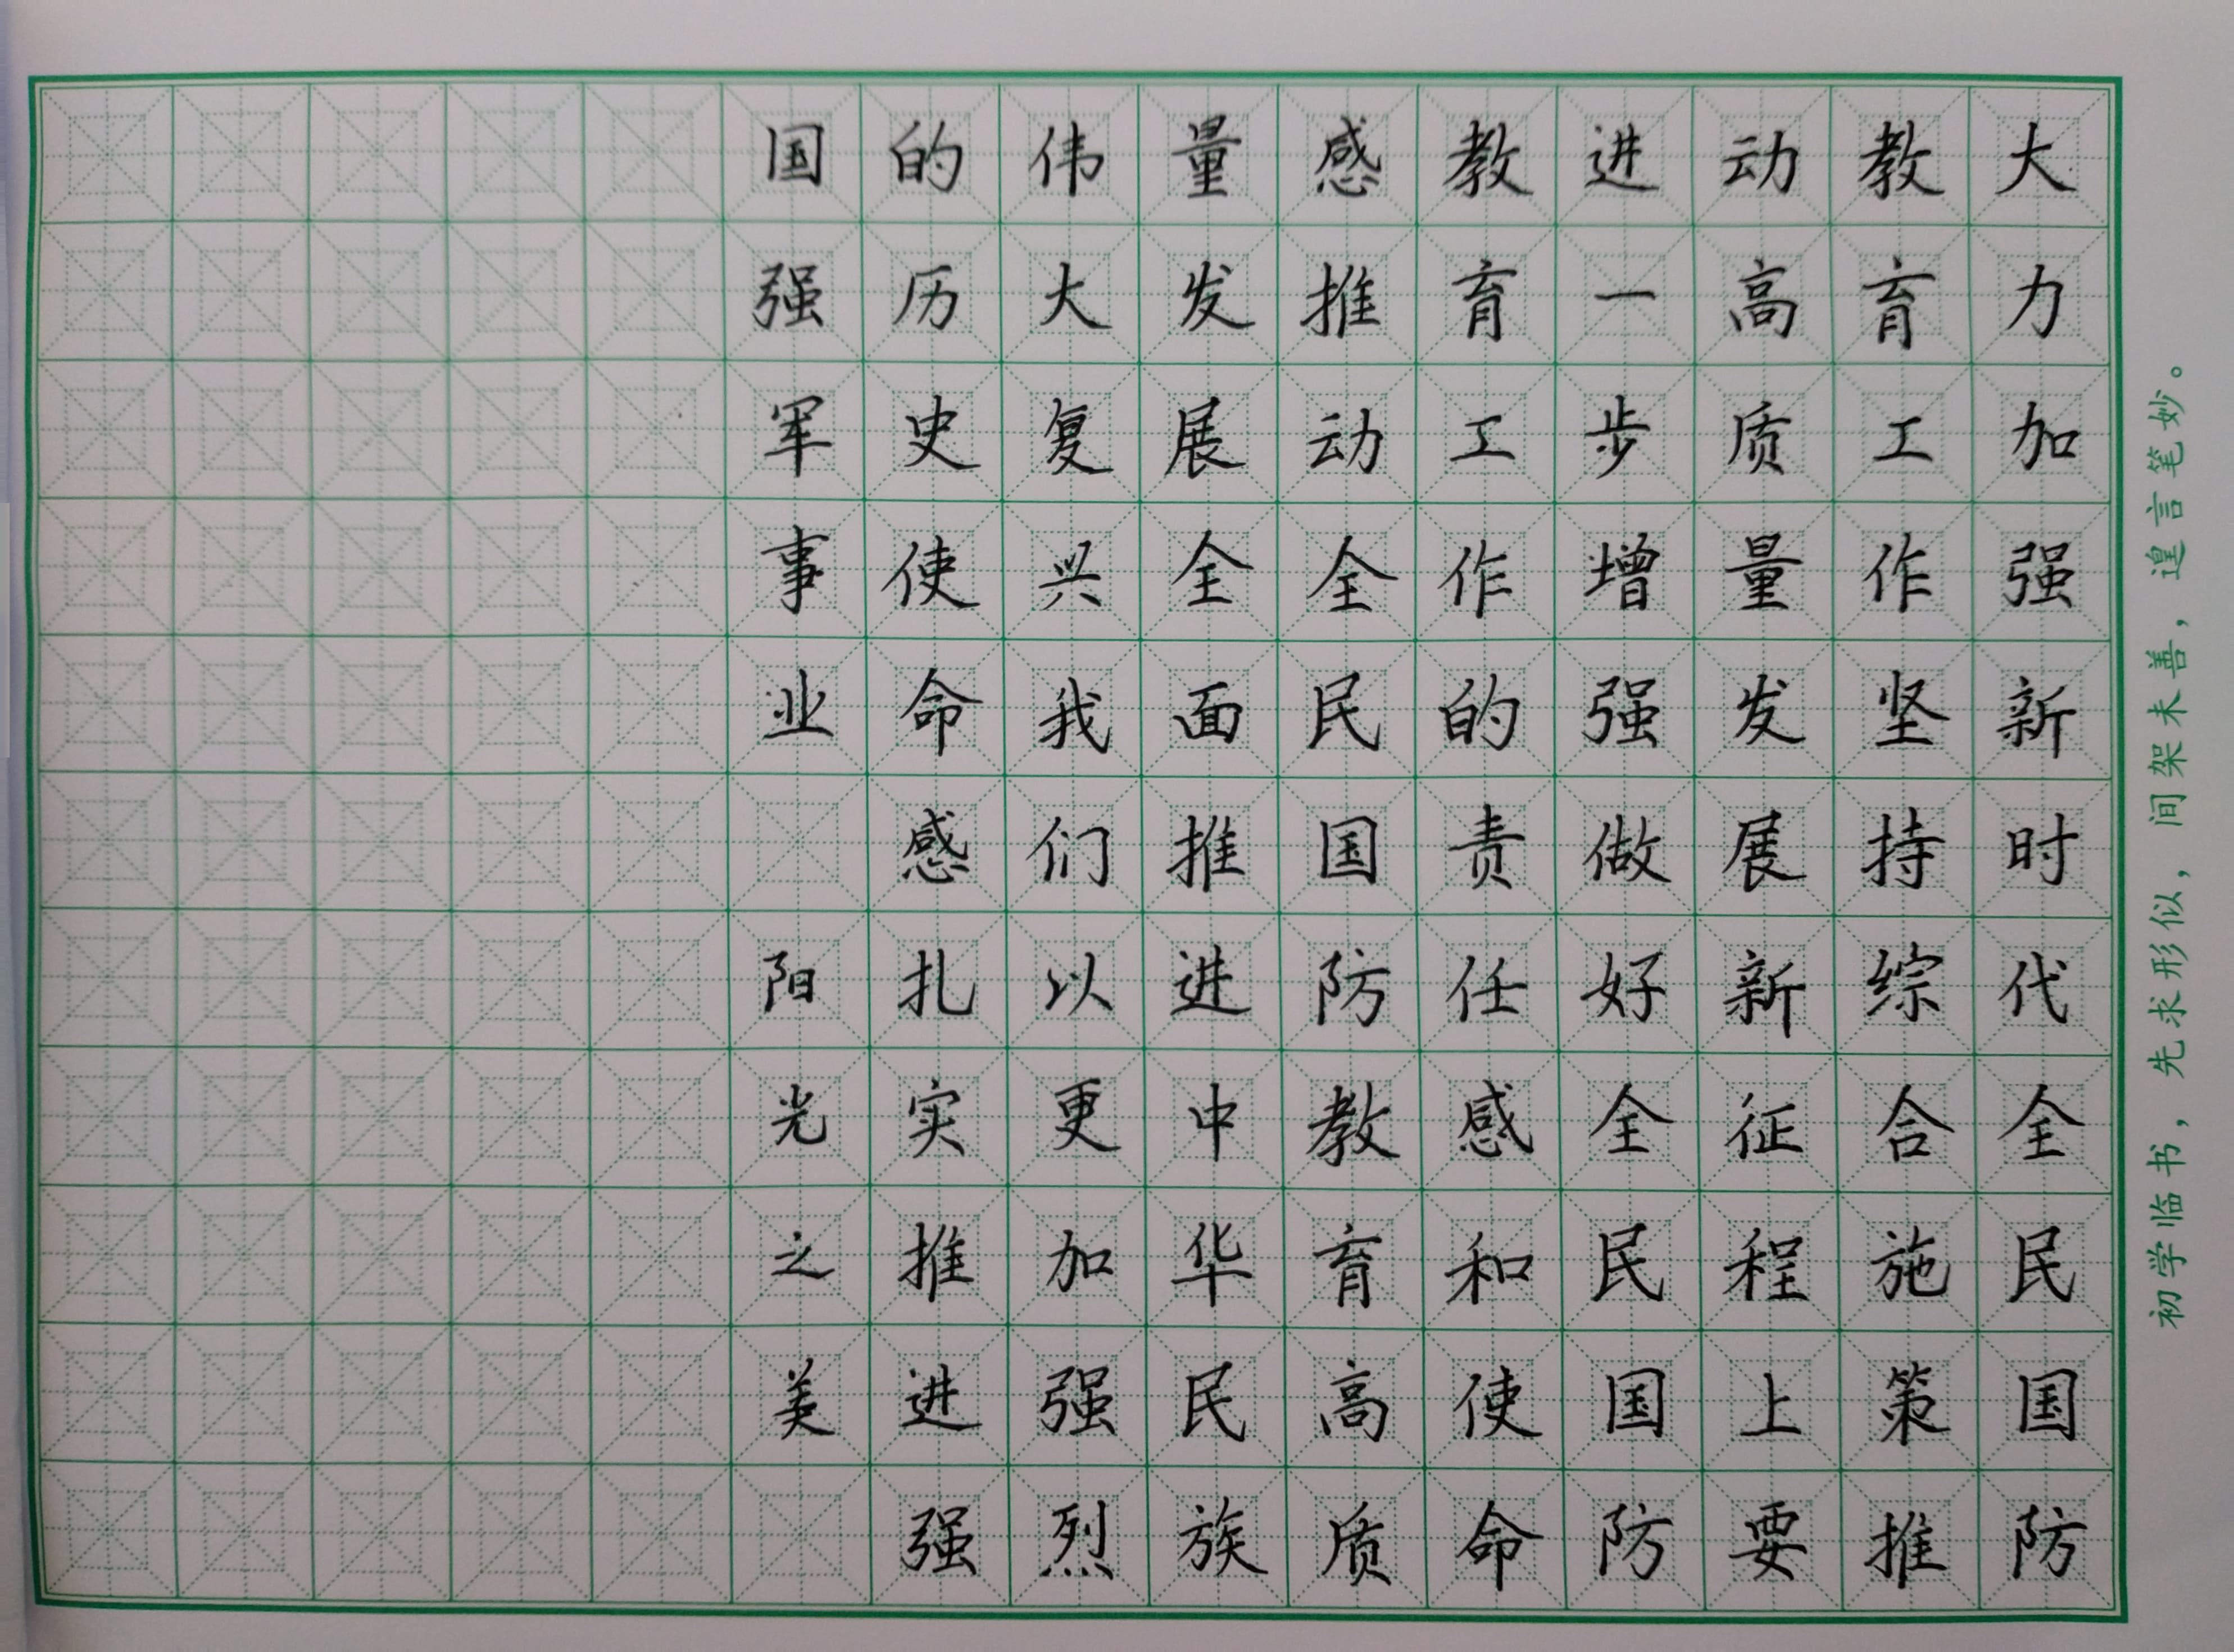 大力加强新时代全民国防
教育工作坚持综合施策推
动高质量发展新征程上要
进一步增强做好全民国防
教育工作的责任感和使命
感推动全民国防教育高质
量发展全面推进中华民族
伟大复兴我们以更加强烈
的历史使命感扎实推进强
国强军事业
阳光之美
初学临书，先求形似，间架未善，遑言笔妙。